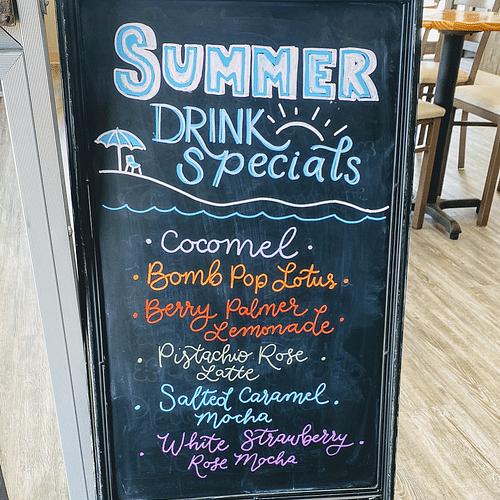 SUMMER
DRINK
Specials
· Cocomel ·
· Bomb Pop Lotus ·
· Berry Palmer
Lemonade ·
· Pistachio Rose ·
Latte
· Salted Caramel ·
Mocha
· White Strawberry ·
Rose Mocha